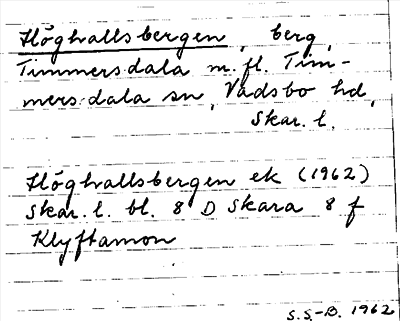 Höghallsbergen, berg,
Timmersdala m.fl. Tim-
mersdala sn, Vadsbo hd,
Skar. l.
Höghallsbergen ek (1962)
Skar. l. bl. 8 D Skara 8 f
Klyftamon
S.S.-B. 1962